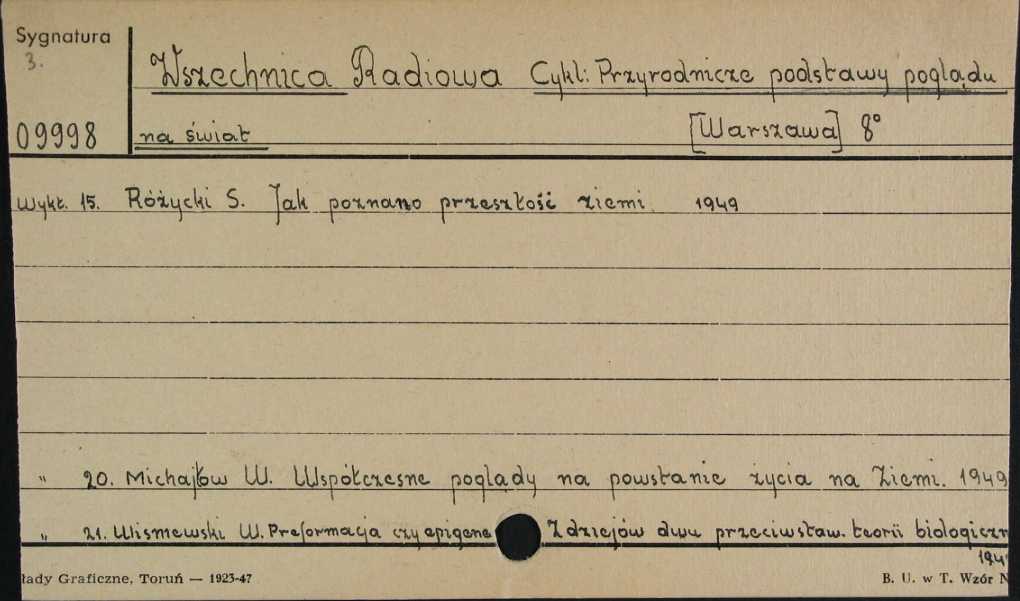 Sygnatura
3.
Wszechnica Radiowa Cykl: Przyrodnicze podstawy poglądu
09998 na świat [Warszawa] 8°
Wykł. 15. Różycki S. Jak poznano przeszłość ziemi. 1949
" 20. Michajłow W. Współczesne poglądy na powstanie życia na Ziemi. 1949
" 21. Wiśniewski W. Preformacja czy epigene Z dziejów dwu przeciwstaw. teorii biologiczn
194
łady Graficzne, Toruń — 1923-47 B. U. w T. Wzór N